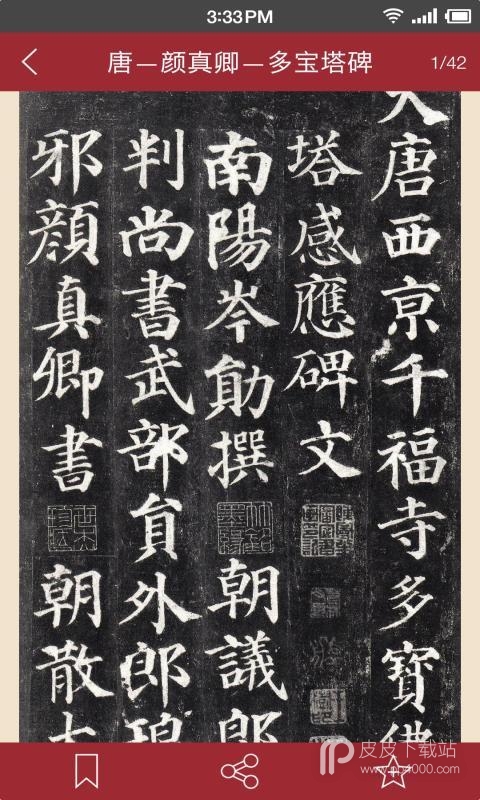 3:33PM
唐—颜真卿—多宝塔碑
1/42
大唐西京千福寺多寶佛
塔感應碑文
南陽岑勛撰 朝議郎
判尚書武部員外郎琅
邪顏真卿書 朝散大
皮皮下载站